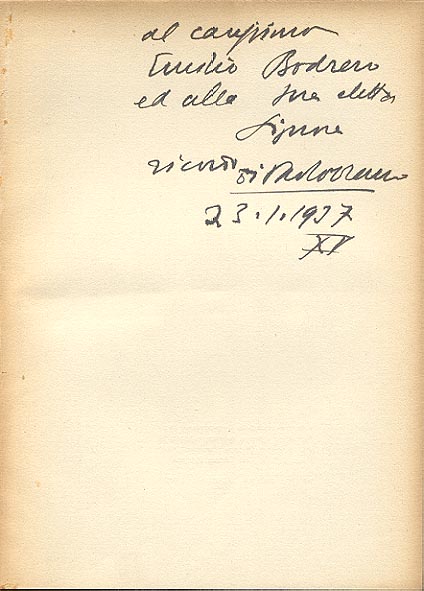 al carissimo
Emilio Bodrero
ed alla Sua eletta
Signora
ricordo di Paolo Orano
23.1.1937
XV